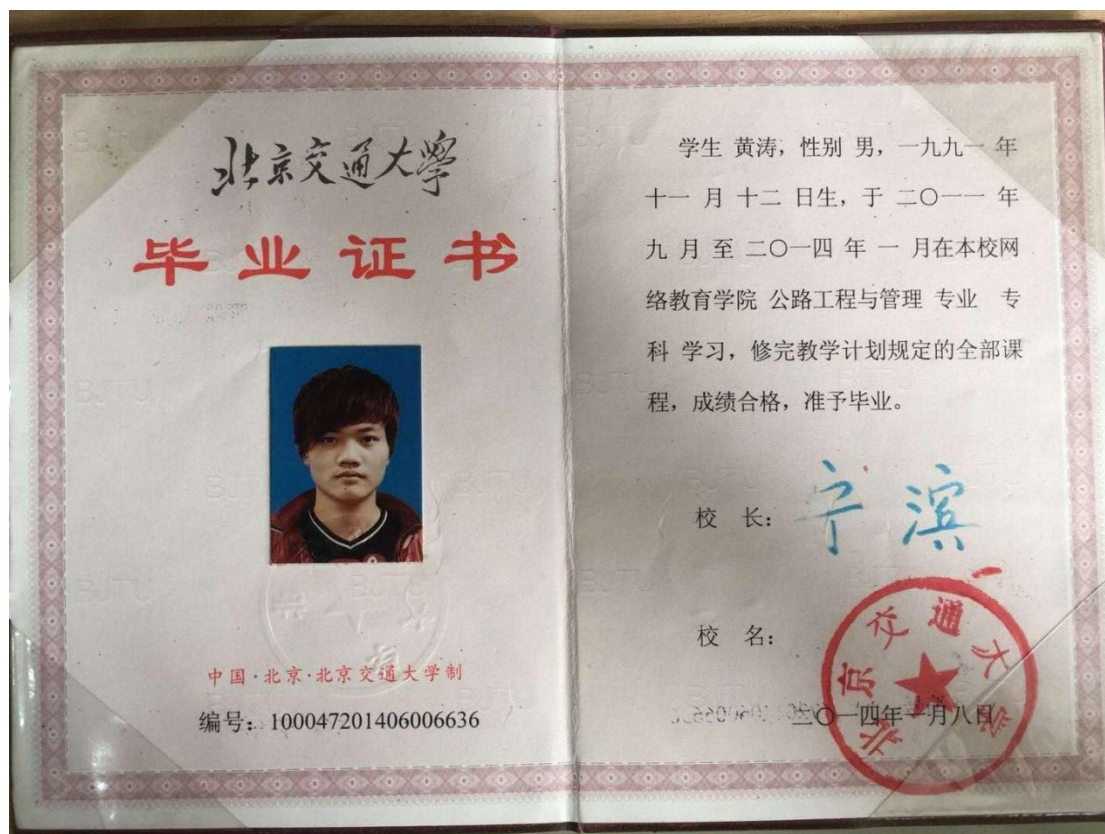 北京交通大學
毕业证书
中国·北京·北京交通大学制
编号：100047201406006636
学生 黄涛，性别 男，一九九一 年
十一 月 十二 日生，于 二〇一一 年
九 月 至 二〇一四 年 一 月在本校网
络教育学院 公路工程与管理 专业 专
科 学习，修完教学计划规定的全部课
程，成绩合格，准予毕业。
校 长：宁 滨
校 名：
北京交通大学
二〇一四年一月八日
BJTU
BJTU
BJTU
BJTU
BJTU